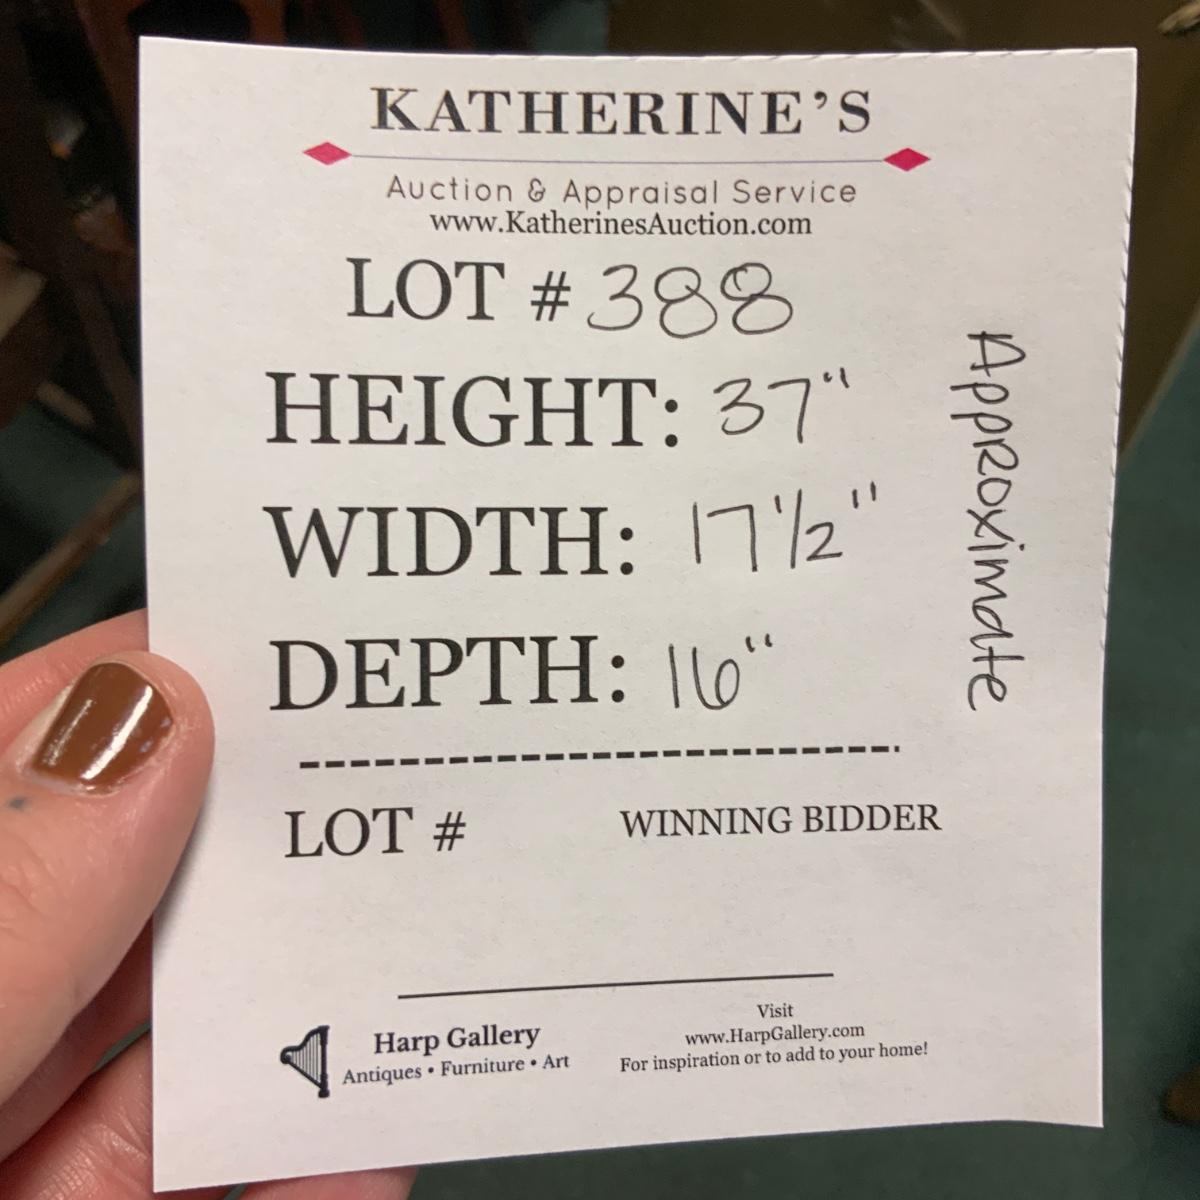 KATHERINE'S
Auction & Appraisal Service
www.KatherinesAuction.com
LOT # 388
HEIGHT: 37"
WIDTH: 17 1/2"
DEPTH: 16"
Approximate
LOT #
WINNING BIDDER
Harp Gallery
Antiques • Furniture • Art
Visit
www.HarpGallery.com
For inspiration or to add to your home!